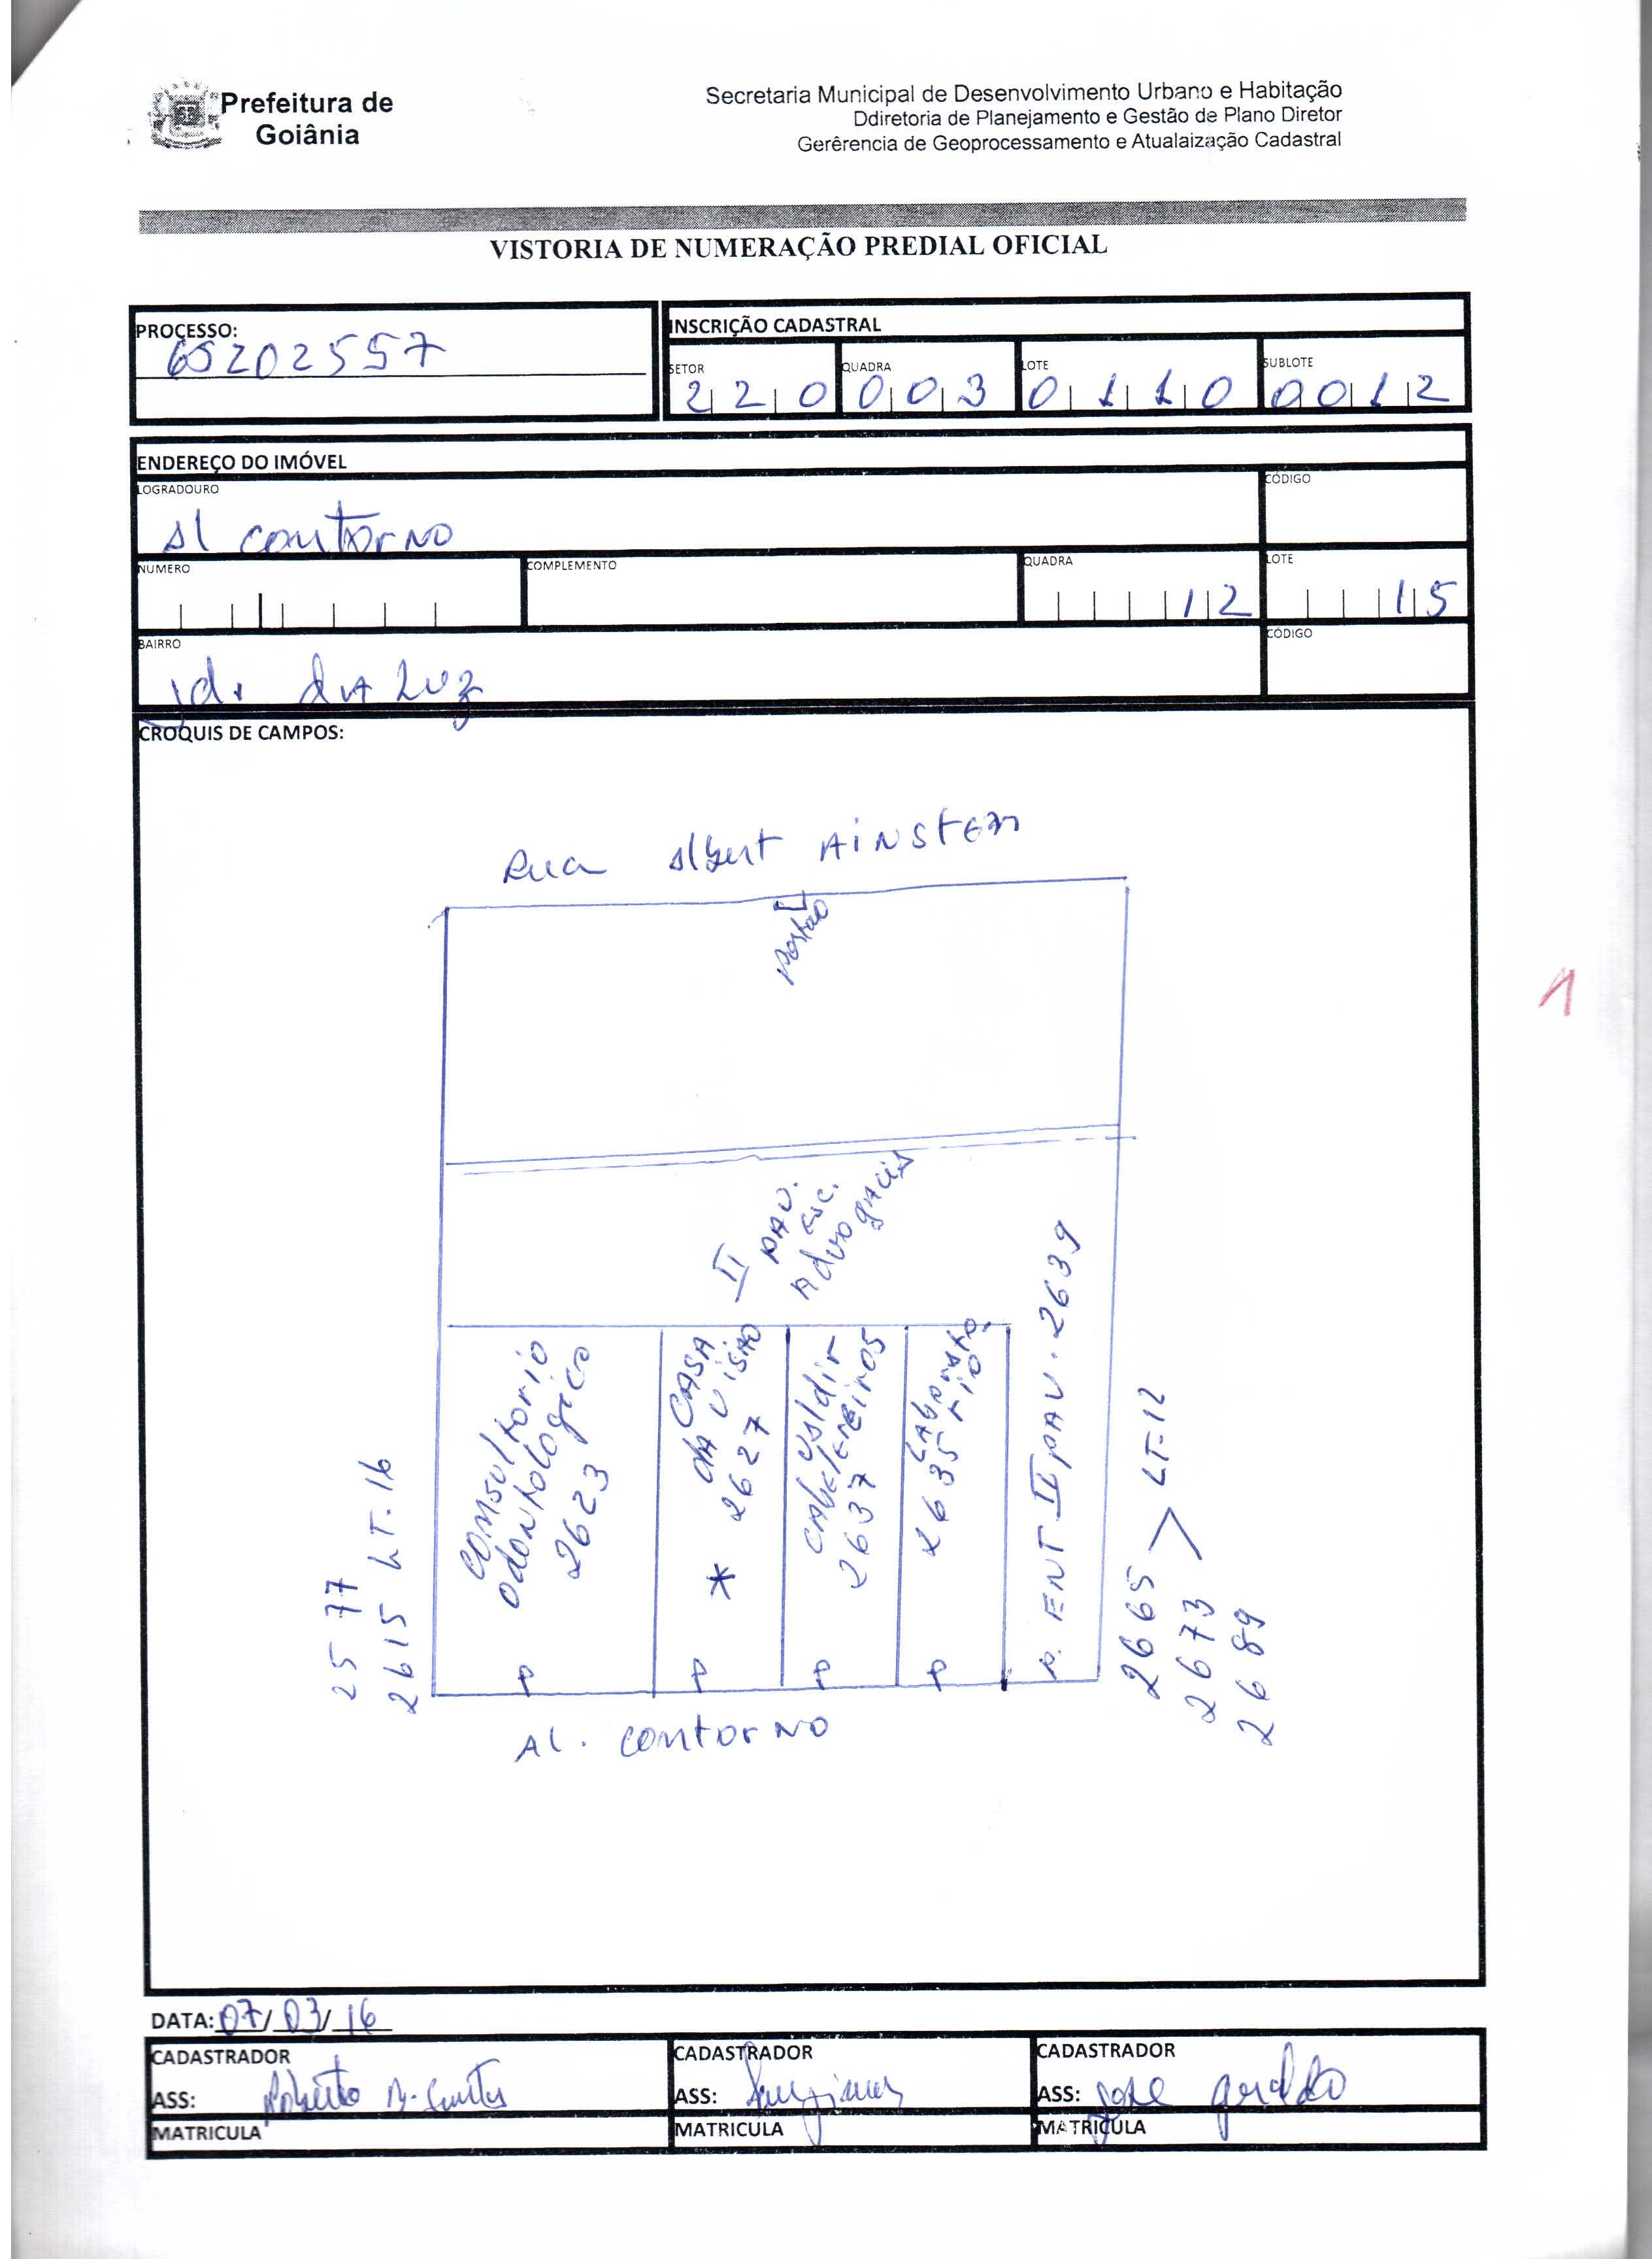 Prefeitura de
Goiânia
Secretaria Municipal de Desenvolvimento Urbano e Habitação
Ddiretoria de Planejamento e Gestão de Plano Diretor
Gerêrencia de Geoprocessamento e Atualaização Cadastral
VISTORIA DE NUMERAÇÃO PREDIAL OFICIAL
PROCESSO:
65202557
INSCRIÇÃO CADASTRAL
SETOR
220
QUADRA
003
LOTE
0110
SUBLOTE
0012
ENDEREÇO DO IMÓVEL
LOGRADOURO
Al contorno
CÓDIGO
NUMERO
COMPLEMENTO
QUADRA
12
LOTE
15
BAIRRO
Jd. da Luz
CÓDIGO
CROQUIS DE CAMPOS:
Rua Albert AiNStein
Portão
II PAV.
esc.
Advogacis
consultorio
odontologico
2623
CASA
da visão
* 2627
Valdir
cabeleireiros
2637
Laborato
rio
2635
P. ENT II PAV. 2639
2577
2615 LT. 16
2665 > LT-12
2673
2689
P
P
P
P
Al. contorno
1
DATA: 07/03/16
CADASTRADOR
ASS: Roberto
MATRICULA
CADASTRADOR
ASS:
MATRICULA
CADASTRADOR
ASS: Jose geraldo
MATRICULA